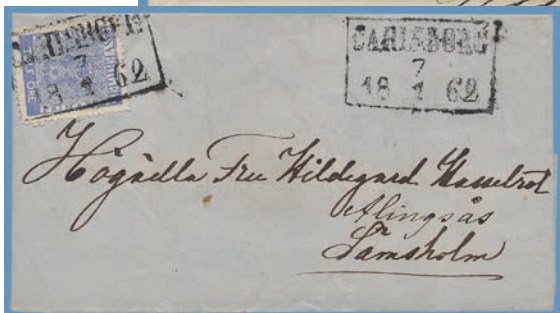 CARLSBORG
7
18 1 62
SVERIGE
ÖRE
CARLSBORG
7
18 1 62
Högädla Fru Hildegard Hasselrot
Alingsås
Lämsholm